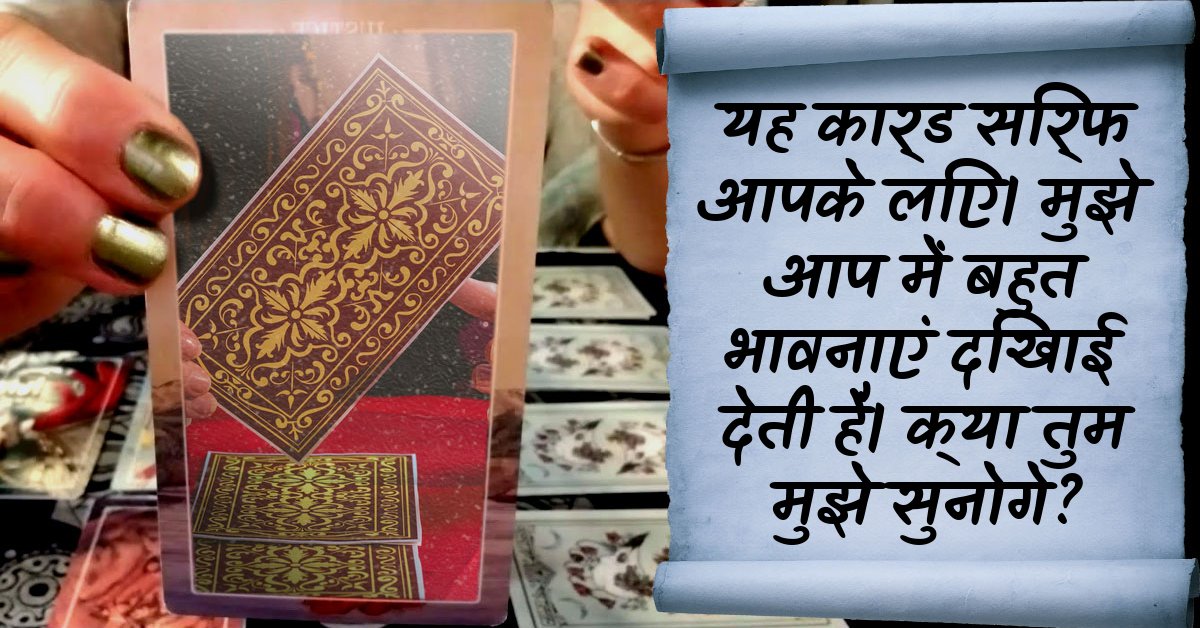 यह कार्ड सिर्फ
आपके लिए। मुझे
आप में बहुत
भावनाएं दिखाई
देती हैं। क्या तुम
मुझे सुनोगे?